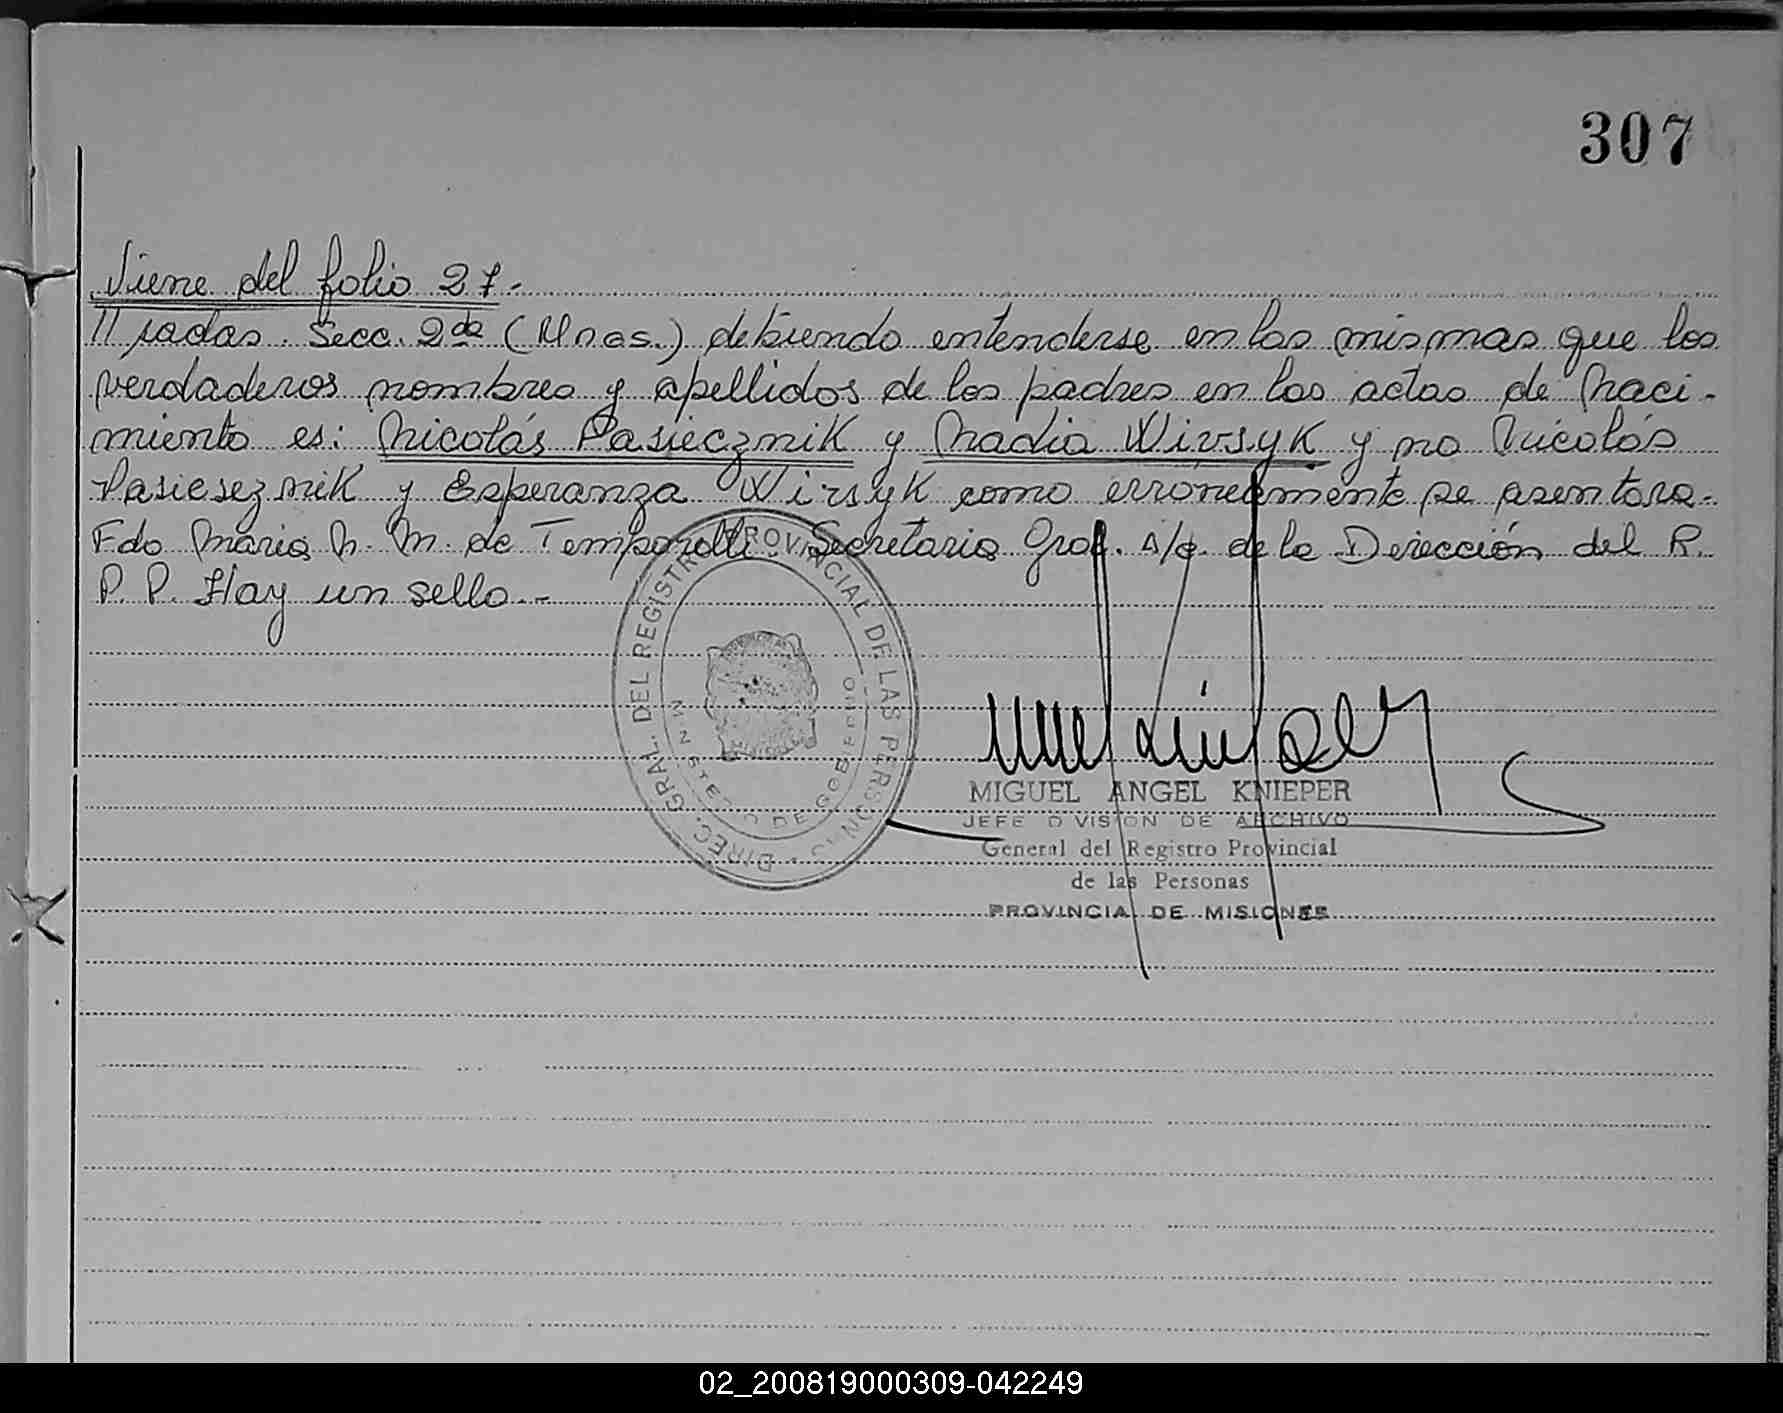 307
Viene del folio 27.-
//radas. Secc. 2da (Mnes.) debiendo entenderse en las mismas que los
verdaderos nombres y apellidos de los padres en las actas de Naci-
miento es: Nicolás Pasiecznik y Nadia Wirsyk y no Nicolás
Pasieseznik y Esperanza Wirsyk como erróneamente se asentara.-
Fdo María N. M. de Temporetti. Secretaria Gral. A/c. de la Dirección del R.
P. P. Hay un sello.-
DIREC. GRAL. DEL REGISTRO PROVINCIAL DE LAS PERSONAS
MINISTERIO DE GOBIERNO
MIGUEL ANGEL KNIEPER
JEFE DIVISION DE ARCHIVO
General del Registro Provincial
de las Personas
PROVINCIA DE MISIONES
02_200819000309-042249